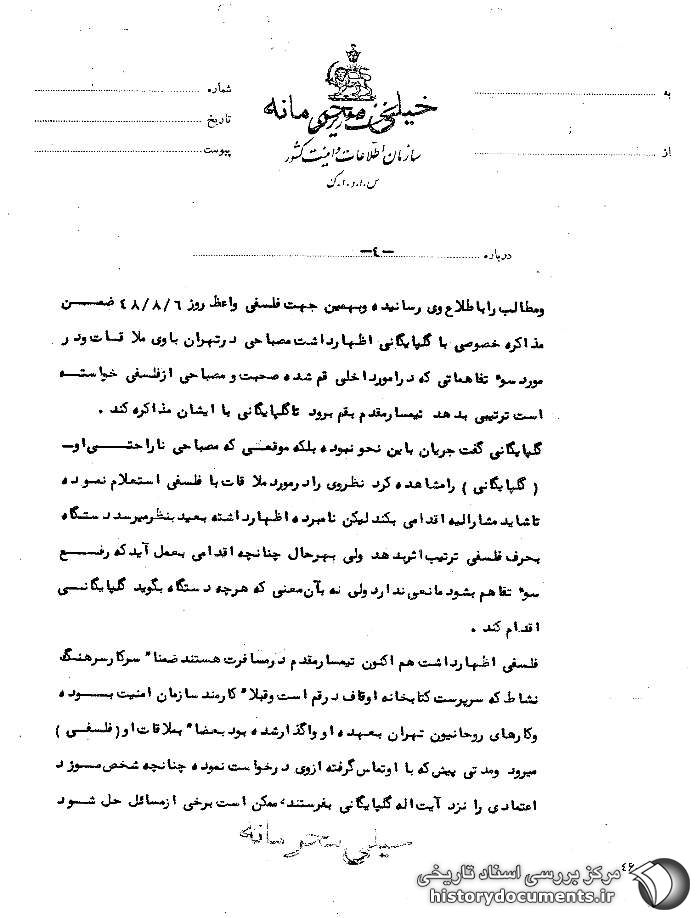 خیلی محرمانه
به
شماره
تاریخ
از
پیوست
سازمان اطلاعات و امنیت کشور
س.ا.و.ا.ک
درباره -۴-
ومطالب را باطلاع وی رسانیده وبهمین جهت فلسفی واعظ روز ۴۸/۸/۶ ضمن
مذاکره خصوصی با گلپایگانی اظهارداشت مصباحی درتهران باوی ملاقات ودر
مورد سو٬ تفاهماتی که درامورداخلی قم شده صحبت و مصباحی ازفلسفی خواسته
است ترتیبی بدهد تیمسارمقدم بقم برود تاگلپایگانی با ایشان مذاکره کند .
گلپایگانی گفت جریان باین نحو نبوده بلکه موقعی که مصباحی ناراحتی او-
( گلپایگانی ) رامشاهده کرد نظروی رادرمورد ملاقات با فلسفی استعلام نموده
تاشاید مشارالیه اقدامی بکند لیکن نامبرده اظهارداشته بعید بنظرمیرسد دستگاه
بحرف فلسفی ترتیب اثربدهد ولی بهرحال چنانچه اقدامی بعمل آید که رفع
سو٬ تفاهم بشود مانعی ندارد ولی نه بآن معنی که هرچه دستگاه بگوید گلپایگانی
اقدام کند .
فلسفی اظهارداشت هم اکنون تیمسارمقدم درمسافرت هستند ضمنا" سرکارسرهنگ
نشاط که سرپرست کتابخانه اوقاف درقم است وقبلا" کارمند سازمان امنیت بوده
وکارهای روحانیون تهران بعهده او واگذارشده بود بعضا" بملاقات او(فلسفی )
میرود ومدتی پیش که با اوتماس گرفته ازوی درخواست نموده چنانچه شخص مورد
اعتمادی را نزد آیت اله گلپایگانی بفرستند، ممکن است برخی ازمسائل حل شود
خیلی محرمانه
مرکز بررسی اسناد تاریخی
historydocuments.ir